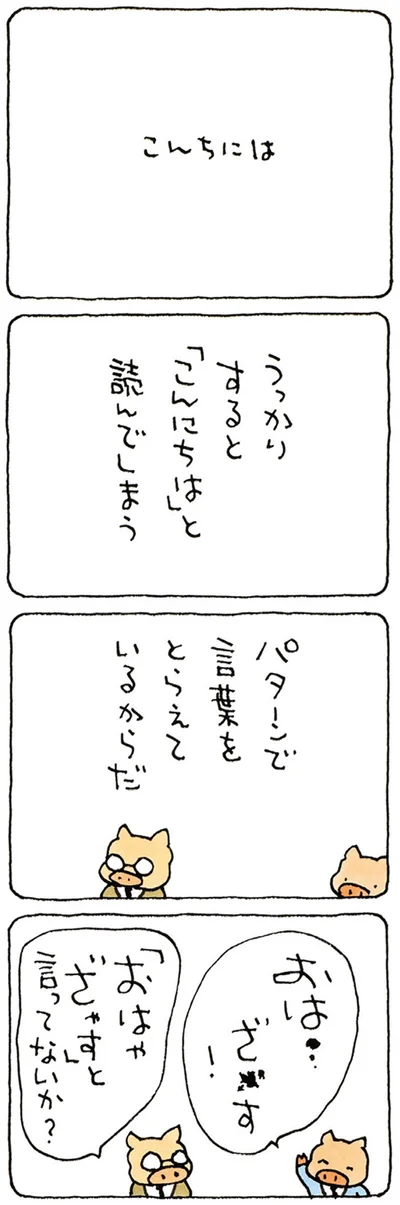 こんちには
うっかり
すると
「こんにちは」と
読んでしまう
パターンで
言葉を
とらえて
いるからだ
おは
ざす
！
「おはゃ
ざゃす」と
言ってないか？